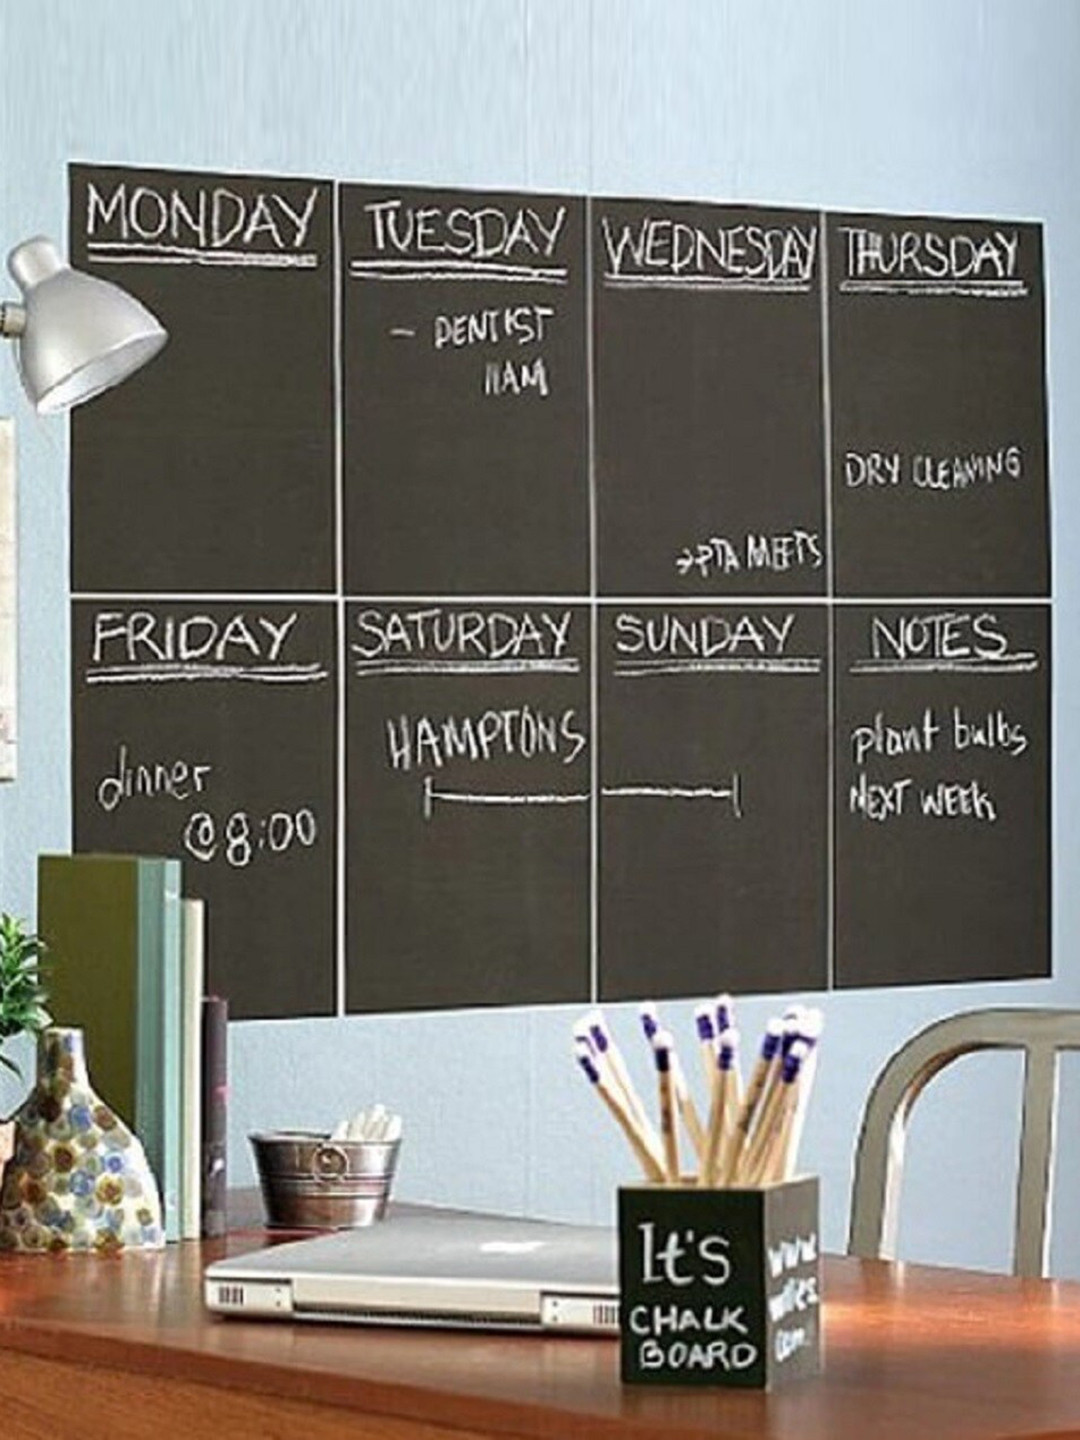 MONDAY
TUESDAY
- DENTIST
11AM
WEDNESDAY
→PTA MEETS
THURSDAY
DRY CLEANING
FRIDAY
dinner
@8:00
SATURDAY
HAMPTONS
SUNDAY
NOTES
plant bulbs
NEXT WEEK
It's
CHALK
BOARD
www.